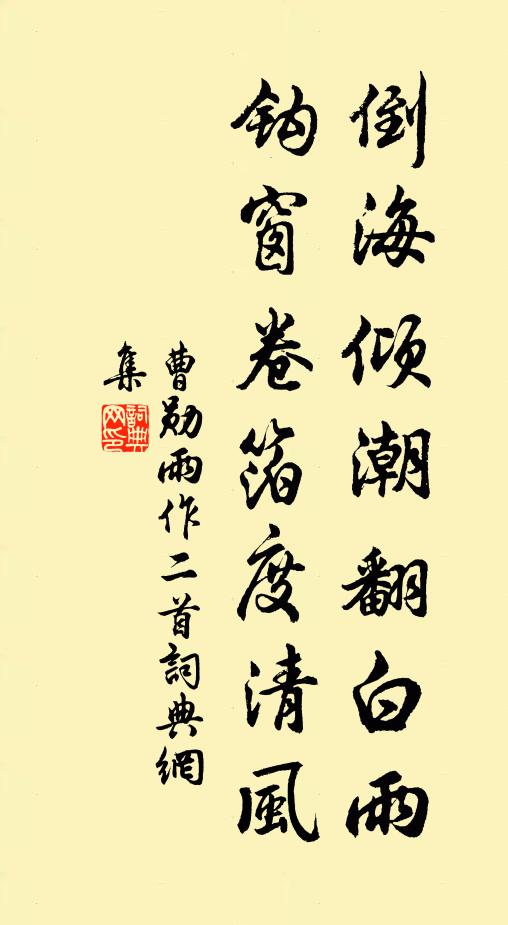 倒海傾潮翻白雨
鈎窗卷箔度清風
曹勛雨作二首詞典網
集
詞典網印